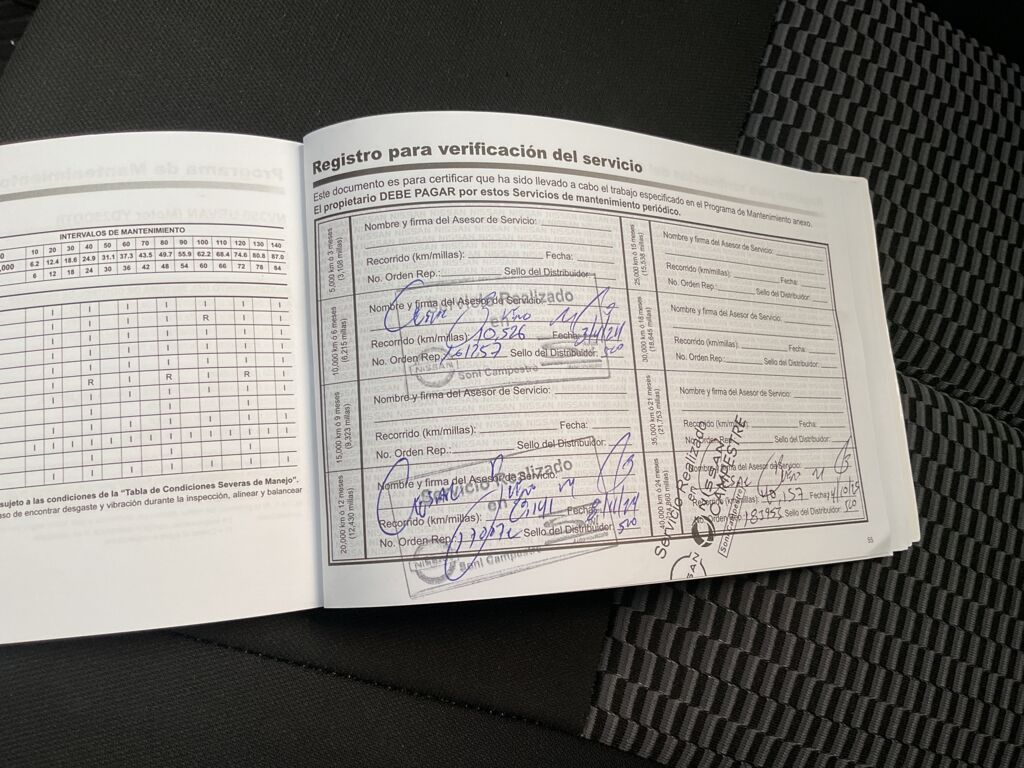 INTERVALOS DE MANTENIMIENTO
10 20 30 40 50 60 70 80 90 100 110 120 130 140
6.2 12.4 18.6 24.9 31.1 37.3 43.5 49.7 55.9 62.2 68.4 74.6 80.8 87.0
6 12 18 24 30 36 42 48 54 60 66 72 78 84
sujeto a las condiciones de la "Tabla de Condiciones Severas de Manejo".
so de encontrar desgaste y vibración durante la inspección, alinear y balancear
Registro para verificación del servicio
Este documento es para certificar que ha sido llevado a cabo el trabajo especificado en el Programa de Mantenimiento anexo.
El propietario DEBE PAGAR por estos Servicios de mantenimiento periódico.
5,000 km ó 3 meses
(3,108 millas)
Nombre y firma del Asesor de Servicio:
Recorrido (km/millas): Fecha:
No. Orden Rep.: Sello del Distribuidor:
10,000 km ó 6 meses
(6,215 millas)
Nombre y firma del Asesor de Servicio:
Recorrido (km/millas) 10,526 Fecha
No. Orden Rep. Sello del Distribuidor:
Servicio Realizado
en
NISSAN
Soni Campestre
15,000 km ó 9 meses
(9,323 millas)
Nombre y firma del Asesor de Servicio:
Recorrido (km/millas): Fecha:
No. Orden Rep.: Sello del Distribuidor:
20,000 km ó 12 meses
(12,430 millas)
Nombre y firma del Asesor de Servicio:
Recorrido (km/millas): Fecha
No. Orden Rep Sello del Distribuidor:
Servicio Realizado
en
NISSAN
Soni Campestre
25,000 km ó 15 meses
(15,538 millas)
Nombre y firma del Asesor de Servicio:
Recorrido (km/millas): Fecha:
No. Orden Rep.: Sello del Distribuidor:
30,000 km ó 18 meses
(18,645 millas)
Nombre y firma del Asesor de Servicio:
Recorrido (km/millas): Fecha:
No. Orden Rep.: Sello del Distribuidor:
35,000 km ó 21 meses
(21,753 millas)
Nombre y firma del Asesor de Servicio:
Recorrido (km/millas): Fecha:
No. Orden Rep.: Sello del Distribuidor:
40,000 km ó 24 meses
(24,860 millas)
Nombre y firma del Asesor de Servicio:
Recorrido (km/millas): 40,157 Fecha
No. Orden Rep. 183953 Sello del Distribuidor:
Servicio Realizado
en
NISSAN
CAMPESTRE
Soni Campestre
55